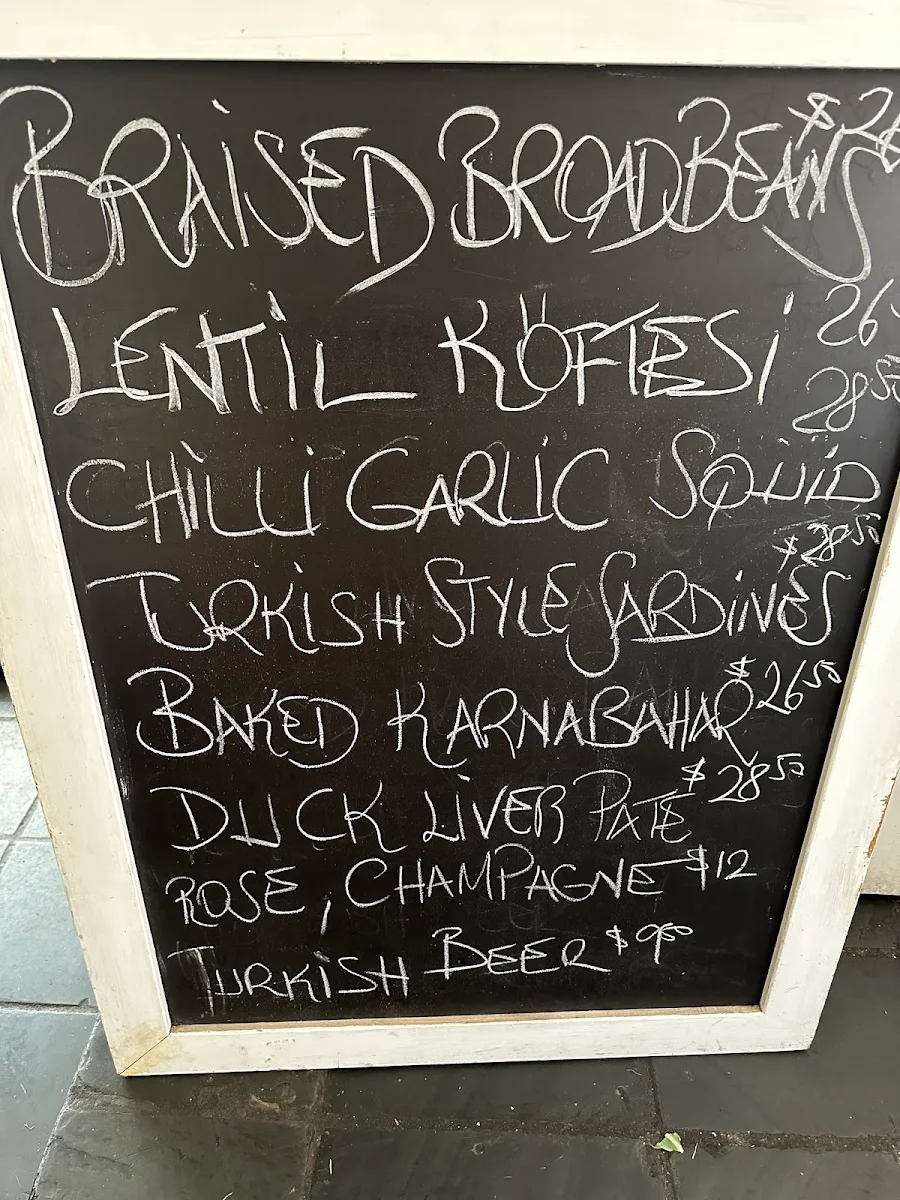 BRAISED BROADBEANS
LENTIL KÖFTESI 26
CHILLI GARLIC SQUID 28.50
TURKISH STYLE SARDINES $28.50
BAKED KARNABAHAR $26.50
DUCK LIVER PATE $28.50
ROSE, CHAMPAGNE $12
TURKISH BEER $9.50